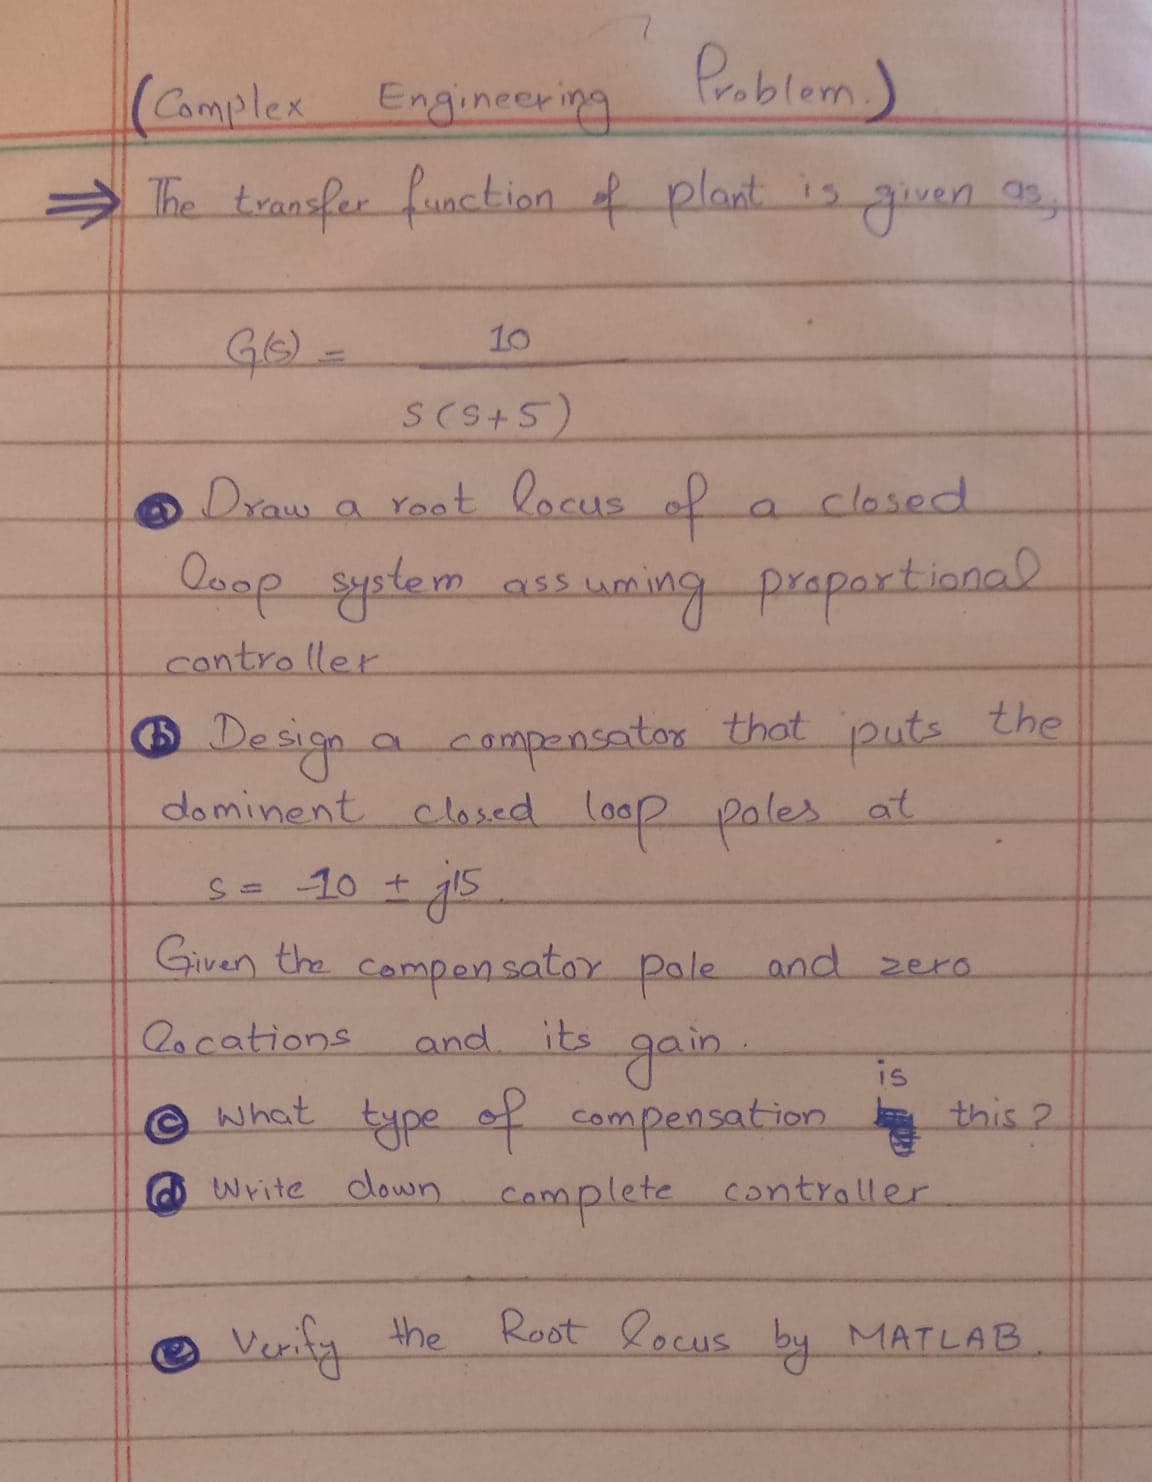 (Complex Engineering Problem.)
⇒ The transfer function of plant is given as,
G(s) = 10
s(s+5)
ⓐ Draw a root locus of a closed
loop system assuming proportional
controller
ⓑ Design a compensator that puts the
dominent closed loop poles at
s = -10 ± j15.
Given the compensator pole and zero
locations and its gain.
is
ⓒ What type of compensation this?
ⓓ Write down complete controller
ⓔ Verify the Root locus by MATLAB.